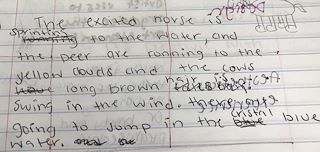 The excited horse is
sprinting to the water, and
the peer are running to the
yellow clouds and the cows
long brown hair is
swing in the wind.
going to jump in the cristal blue
water.